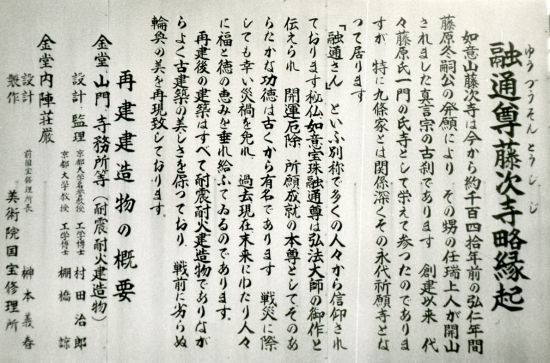 ゆうづうそんとうじじ
融通尊藤次寺略縁起
如意山藤次寺は今から約千百四拾年前の弘仁年間
藤原冬嗣公の発願により その甥の任瑞上人が開山
されました真言宗の古刹であります 創建以来 代
々藤原氏一門の氏寺として栄えて参つたのでありま
すが 特に九條家とは関係深くその永代祈願寺とな
つて居ります
「融通さん」といふ別称で多くの人々から信仰され
ております秘仏如意宝珠融通尊は弘法大師の御作と
伝えられ 開運厄除 所願成就の本尊としてそのあ
らたかな功徳は古くから有名であります 戦災に際
しても幸い災禍を免れ 過去現在末来にわたり人々
に福と徳の恵みを垂れ給ふてゐるのであります
再建後の建築はすべて耐震耐火建造物でありなが
らよく古建築の美しさを保つており 戦前に劣らぬ
輪奐の美を再現致しております
再建建造物の概要
金堂 山門 寺務所等(耐震耐火建造物)
設計 監理 京都大学名誉教授 工学博士 村田治郎
京都大学教授 工学博士 棚橋諒
金堂内陣荘厳
設計 前国宝修理所長 榊本義春
製作 美術院国宝修理所